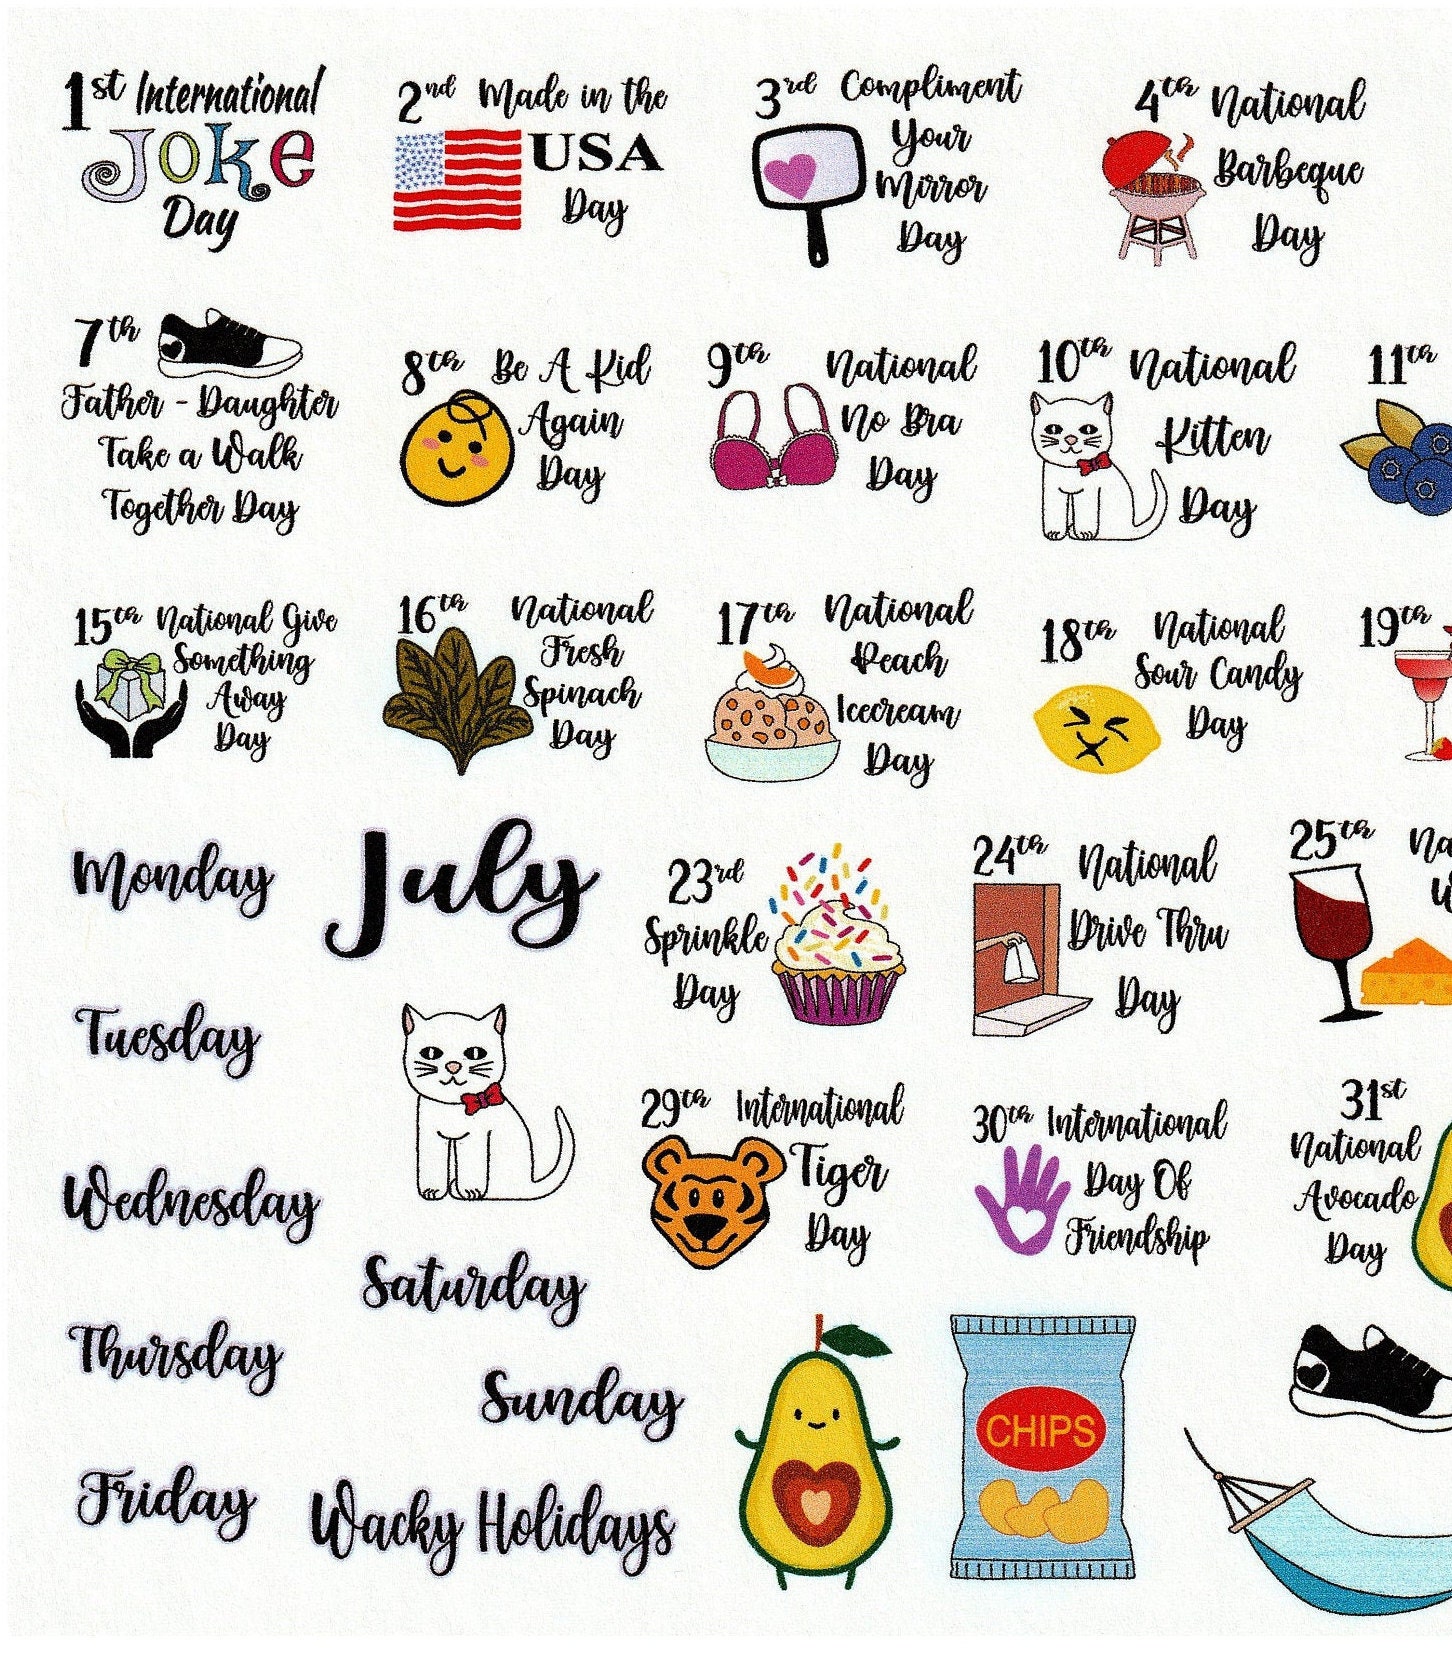 1st International
Joke
Day
2nd Made in the
USA
Day
3rd Compliment
Your
Mirror
Day
4th National
Barbeque
Day
7th
Father - Daughter
Take a Walk
Together Day
8th Be A Kid
Again
Day
9th National
No Bra
Day
10th National
Kitten
Day
11th
15th National Give
Something
Away
Day
16th National
Fresh
Spinach
Day
17th National
Peach
Icecream
Day
18th National
Sour Candy
Day
19th
Monday
July
23rd
Sprinkle
Day
24th National
Drive Thru
Day
25th
Tuesday
29th International
Tiger
Day
30th International
Day Of
Friendship
31st
National
Avocado
Day
Wednesday
Saturday
Thursday
Sunday
CHIPS
Friday
Wacky Holidays